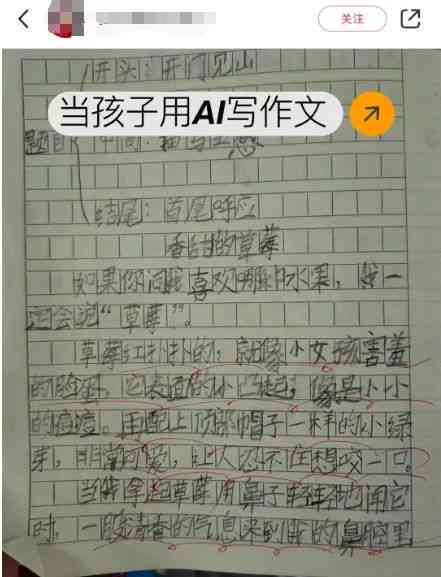 关注
开头：开门见山
当孩子用AI写作文
题目
中间：描写生
结尾：首尾呼应
香甜的草莓
如果你问我喜欢哪种水果，我一
定会说“草莓”。
草莓红扑扑的，就像小女孩害羞
的脸蛋，它表面的小凸起，像是小小
的痘痘。再配上顶部帽子一样的小绿
芽，非常可爱，让人忍不住想咬一口。
当我拿起草莓用鼻子轻轻地闻它
时，一股清香的气息来到我的鼻腔里